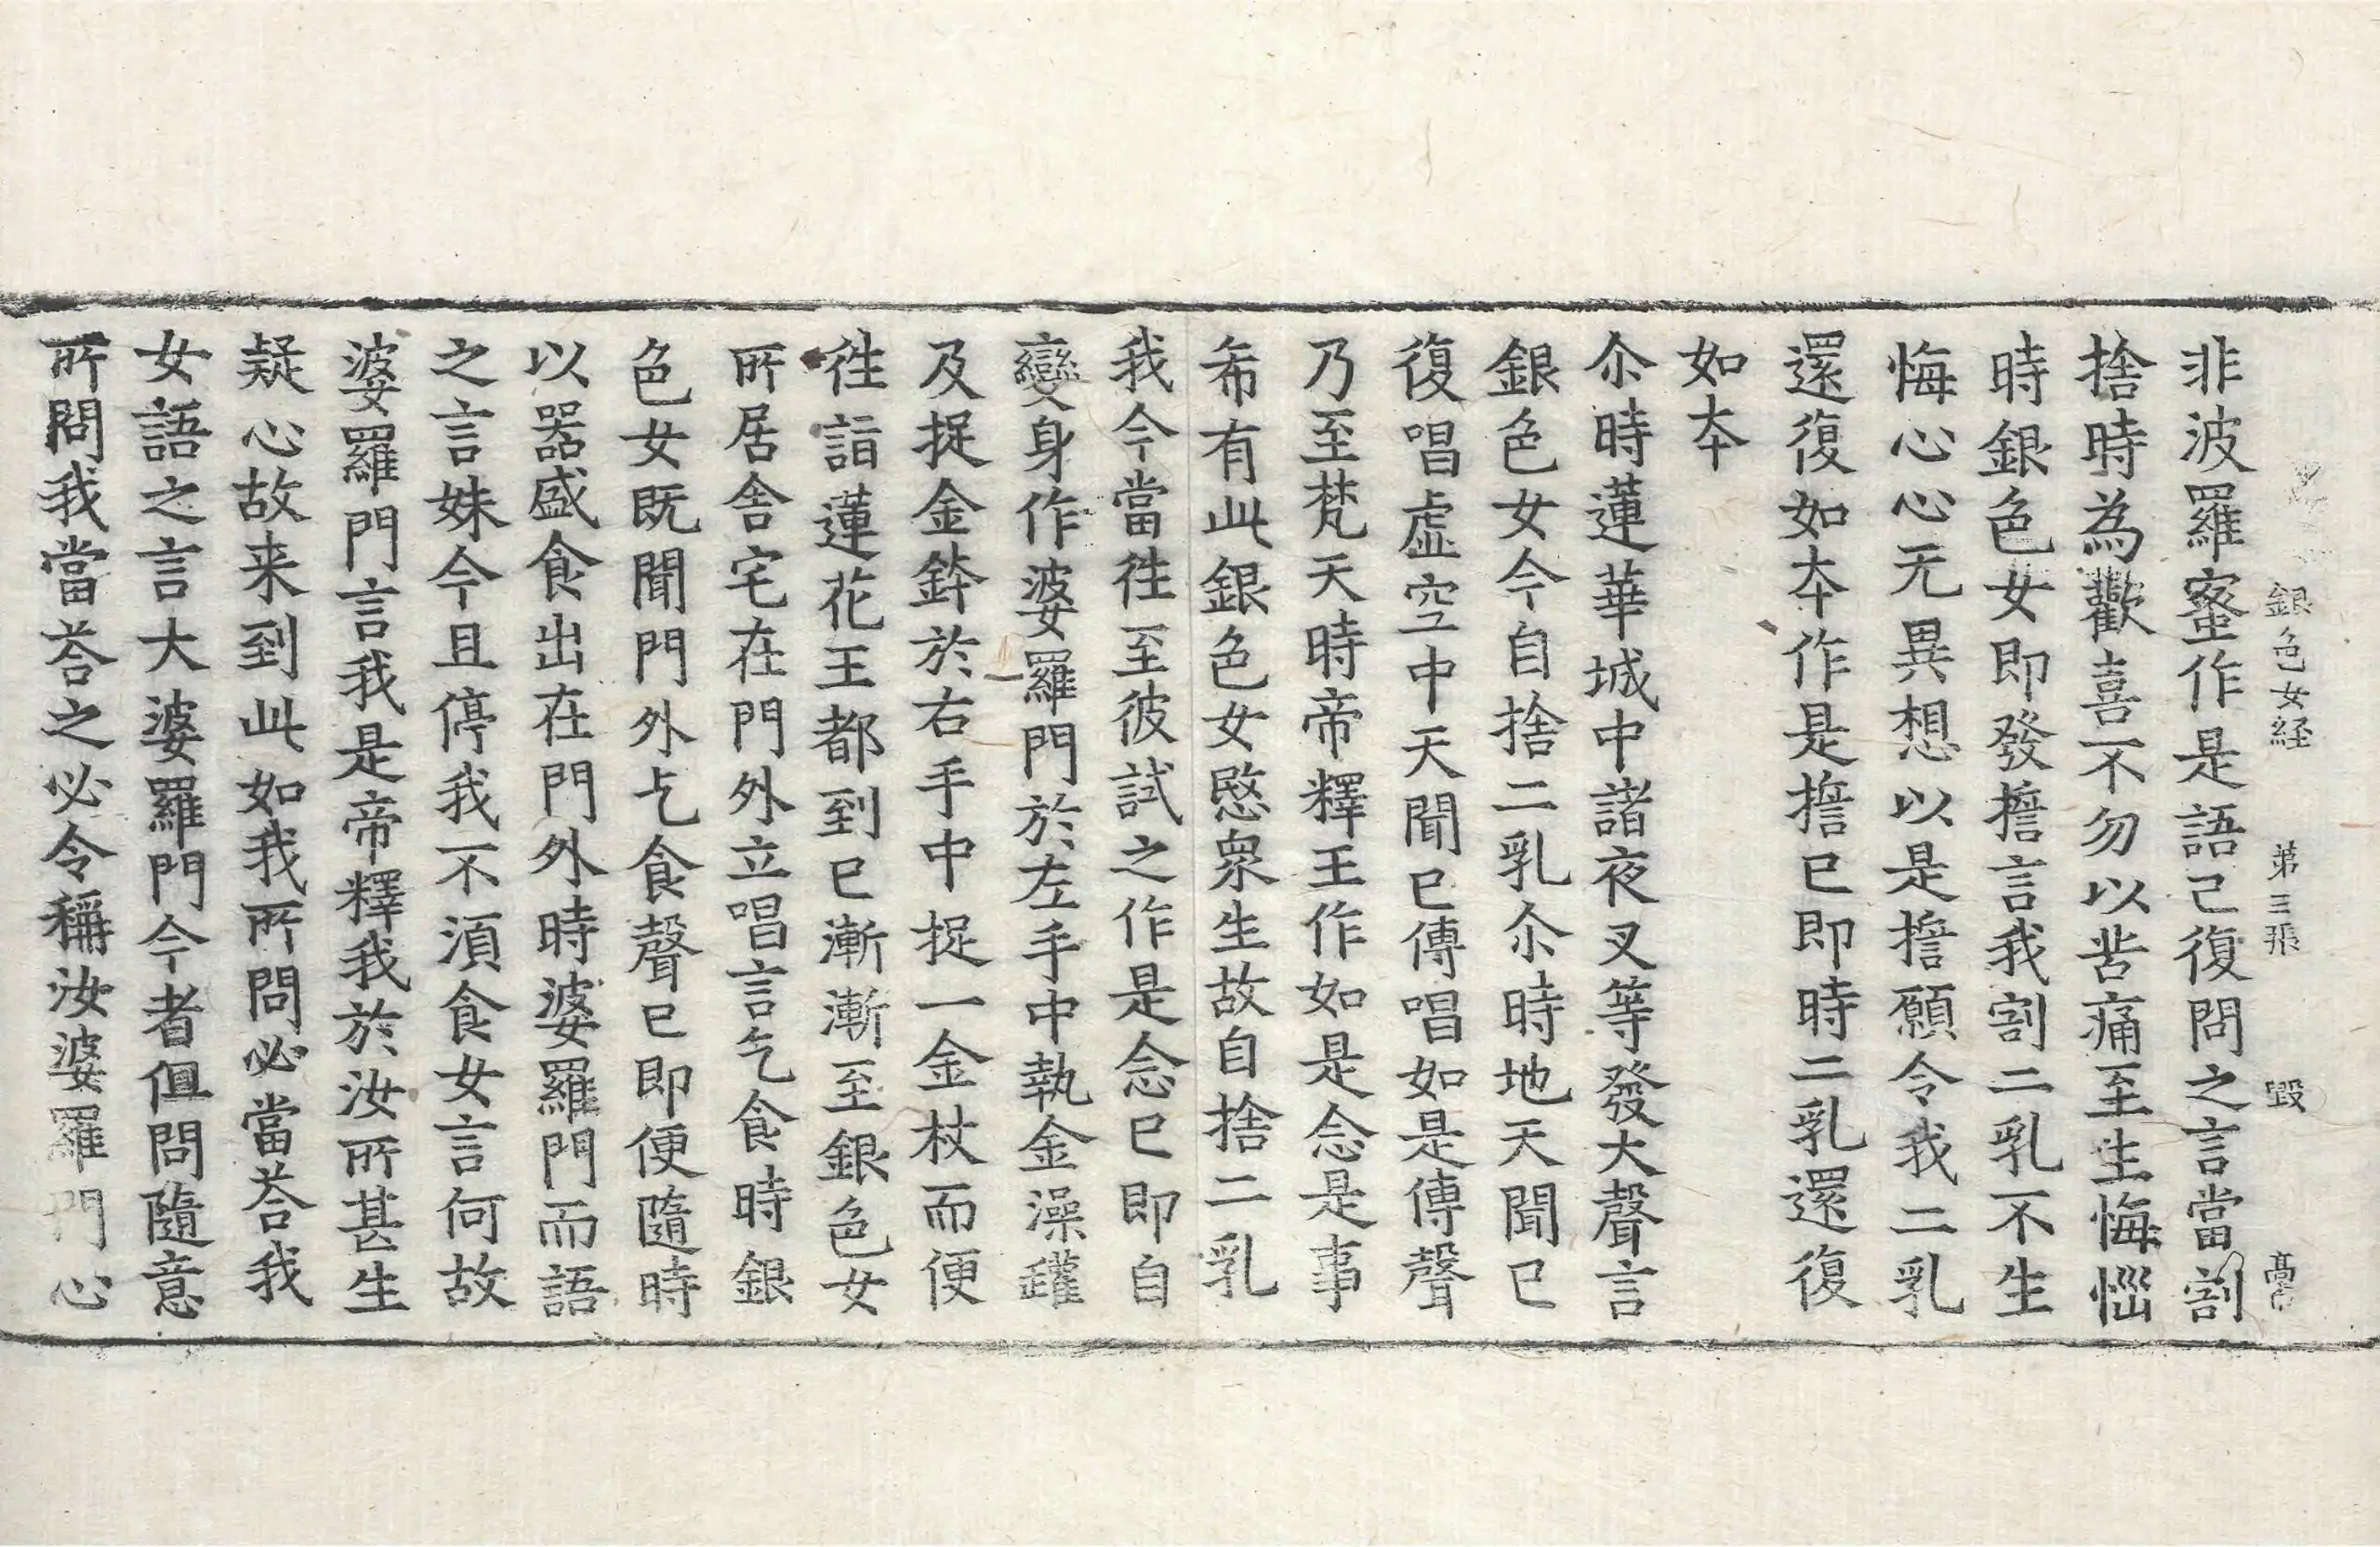 銀色女経 第三張 毀 
非波羅蜜作是語已復問之言當割
捨時為歡喜不勿以苦痛至生悔惱
時銀色女即發擔言我割二乳不生
悔心心无異想以是擔願令我二乳
還復如夲作是擔已即時二乳還復
如夲
尒時蓮華城中諸夜叉等發大聲言
銀色女今自捨二乳尒時地天聞已
復唱虛空中天聞已傳唱如是傳聲
乃至梵天時帝釋王作如是念是事
希有此銀色女愍衆生故自捨二乳
我今當徃至彼試之作是念已即自
變身作婆羅門於左手中執金澡鑵
及捉金鉢於右手中捉一金杖而便
徃詣蓮花王都到已漸漸至銀色女
所居舍宅在門外立唱言乞食時銀
色女既聞門外乞食聲已即便隨時
以器盛食出在門外時婆羅門而語
之言妹今且停我不湏食女言何故
婆羅門言我是帝釋我於汝所甚生
疑心故来到此如我所問必當荅我
女語之言大婆羅門今者但問隨意
所問我當荅之必令稱汝婆羅門心